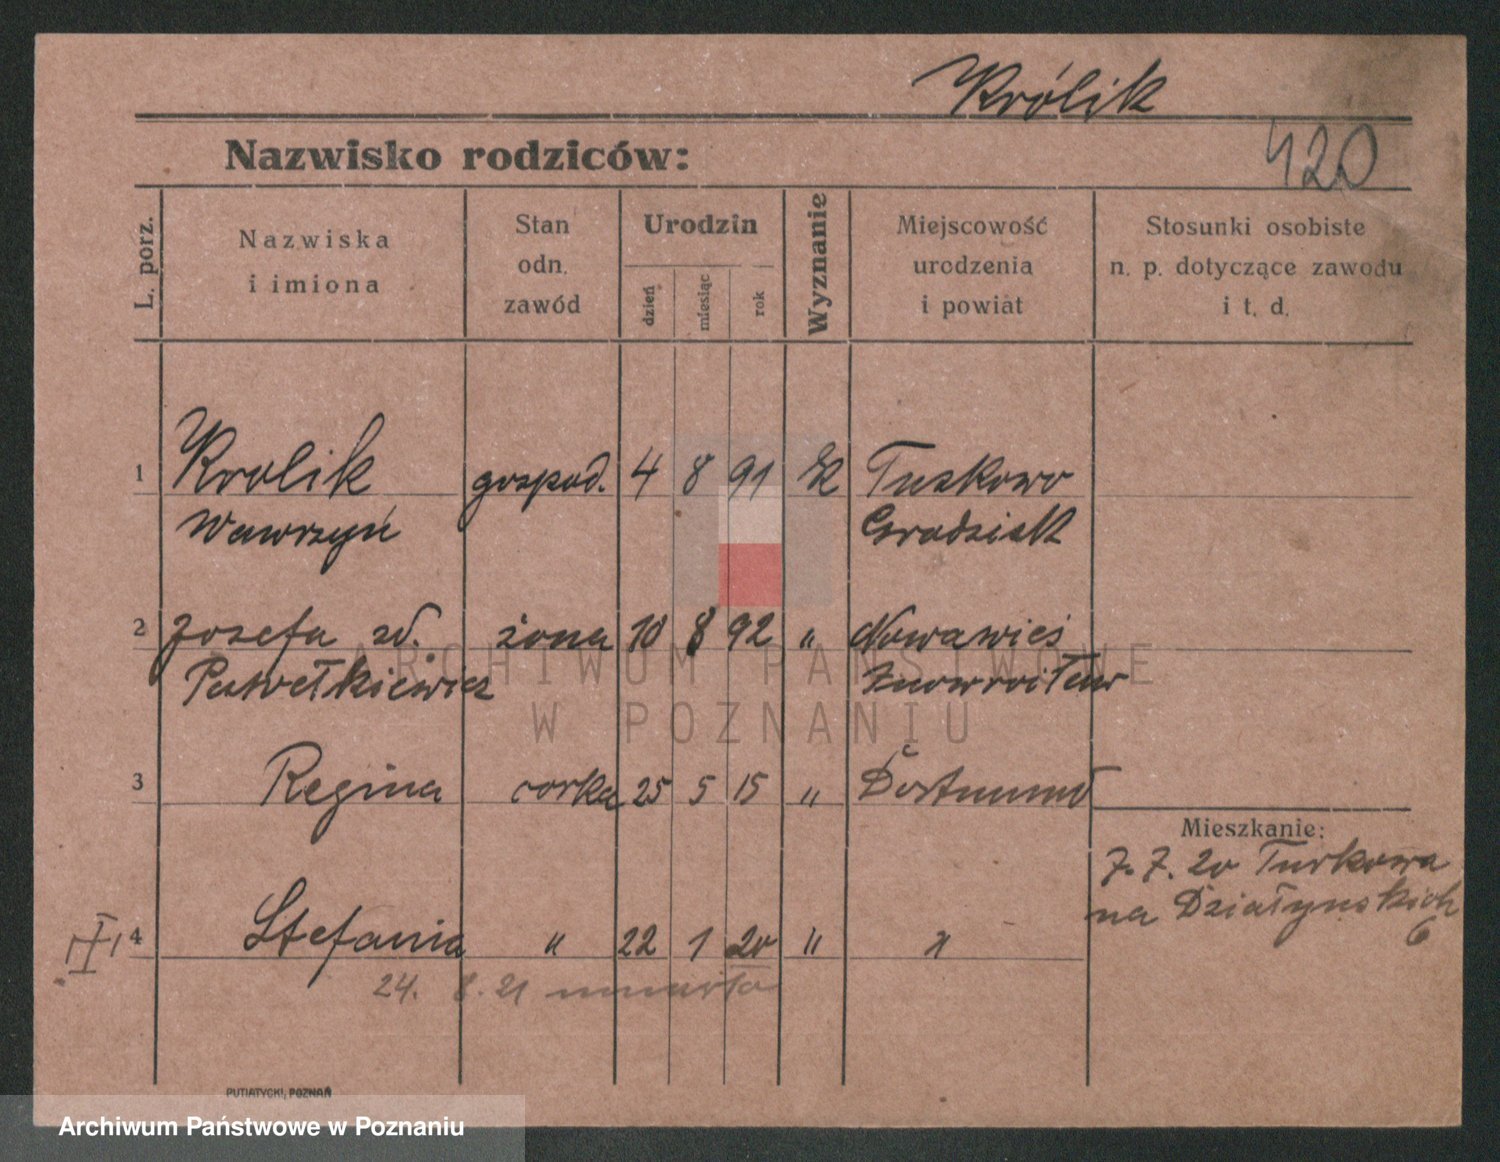 Królik
Nazwisko rodziców:
420
L. porz.
Nazwiska
i imiona
Stan
odn.
zawód
Urodzin
dzień
miesiąc
rok
Wyznanie
Miejscowość
urodzenia
i powiat
Stosunki osobiste
n. p. dotyczące zawodu
i t. d.
1 Krolik gospod. 4 8 91 Tuskowo
Wawrzyn Grodzisk
2 Jozefa zd. żona 10 8 92 " Nowawieś
Pawełkiewicz
ARCHIWUM PAŃSTWOWE
W POZNANIU
3 Regina corka 25 5 15 " Dortmund
Mieszkanie:
7.7.20 Turkowa
na Działyńskich
6
4 Stefania " 22 1 20 " "
24. 8. 21 umarła
PUTIATYCKI, POZNAŃ
Archiwum Państwowe w Poznaniu